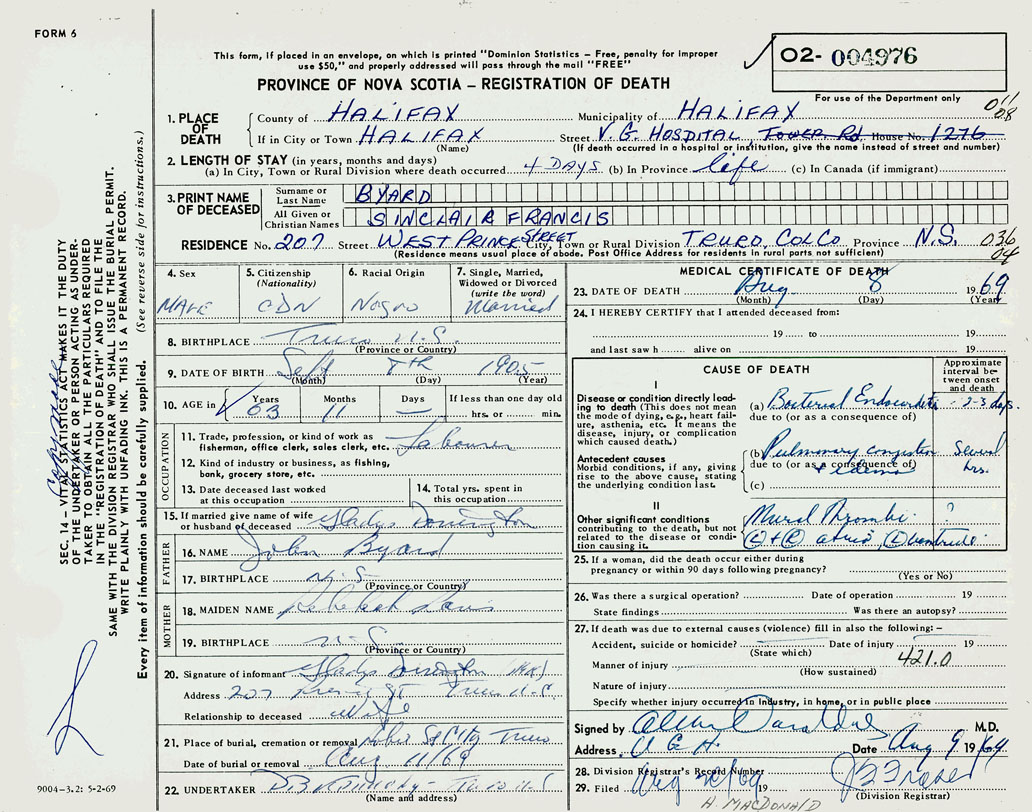 FORM 6
This form, if placed in an envelope, on which is printed "Dominion Statistics – Free, penalty for improper
use $50," and properly addressed will pass through the mail "FREE"
PROVINCE OF NOVA SCOTIA – REGISTRATION OF DEATH
02- 004976
For use of the Department only
011
08
1. PLACE OF DEATH
County of HALIFAX Municipality of HALIFAX
If in City or Town HALIFAX Street V.G. HOSPITAL, TOWER Rd House No. 1276
(Name) (If death occurred in a hospital or institution, give the name instead of street and number)
2. LENGTH OF STAY (in years, months and days)
(a) In City, Town or Rural Division where death occurred 4 DAYS (b) In Province life (c) In Canada (if immigrant)
3. PRINT NAME OF DECEASED
Surname or Last Name BYARD
All Given or Christian Names SINCLAIR FRANCIS
RESIDENCE No. 207 Street WEST PRINCE STREET City, Town or Rural Division TRURO, COL CO Province N.S. 036
04
(Residence means usual place of abode. Post Office Address for residents in rural parts not sufficient)
4. Sex MALE
5. Citizenship (Nationality) CDN
6. Racial Origin Negro
7. Single, Married, Widowed or Divorced (write the word) Married
8. BIRTHPLACE Truro N.S.
(Province or Country)
9. DATE OF BIRTH Sept 8TH 1905
(Month) (Day) (Year)
10. AGE in Years 63 Months 11 Days — If less than one day old
hrs. or min.
OCCUPATION
11. Trade, profession, or kind of work as fisherman, office clerk, sales clerk, etc. Labourer
12. Kind of industry or business, as fishing, bank, grocery store, etc.
13. Date deceased last worked at this occupation
14. Total yrs. spent in this occupation
15. If married give name of wife or husband of deceased Gladys
FATHER
16. NAME John Byard
17. BIRTHPLACE N.S.
(Province or Country)
MOTHER
18. MAIDEN NAME
19. BIRTHPLACE N.S.
(Province or Country)
20. Signature of informant Gladys
Address 207 Prince St Truro N.S.
Relationship to deceased Wife
21. Place of burial, cremation or removal Truro
Date of burial or removal Aug 11/69
22. UNDERTAKER
(Name and address)
MEDICAL CERTIFICATE OF DEATH
23. DATE OF DEATH Aug 8 1969
(Month) (Day) (Year)
24. I HEREBY CERTIFY that I attended deceased from:
19 to 19
and last saw h alive on 19
CAUSE OF DEATH
Approximate interval between onset and death
I
Disease or condition directly leading to death (This does not mean the mode of dying, e.g., heart failure, asthenia, etc. It means the disease, injury, or complication which caused death.)
(a) Bacterial Endocarditis - 2-3 days.
due to (or as a consequence of)
Antecedent causes
Morbid conditions, if any, giving rise to the above cause, stating the underlying condition last.
(b) Pulmonary congestion Several hrs.
due to (or as a consequence of)
+ edema
(c)
II
Other significant conditions
contributing to the death, but not related to the disease or condition causing it.
Mural Thrombi ?
(L) + (R) atria, (L) ventricle
25. If a woman, did the death occur either during pregnancy or within 90 days following pregnancy?
(Yes or No)
26. Was there a surgical operation? Date of operation 19
State findings Was there an autopsy?
27. If death was due to external causes (violence) fill in also the following: –
Accident, suicide or homicide? Date of injury 19
(State which) 421.0
Manner of injury
(How sustained)
Nature of injury
Specify whether injury occurred in industry, in home, or in public place
Signed by M.D.
Address V G H. Date Aug 9 1969
28. Division Registrar's Record Number
29. Filed 19
(Division Registrar)
H. MACDONALD
SEC. 14 – VITAL STATISTICS ACT MAKES IT THE DUTY
OF THE UNDERTAKER OR PERSON ACTING AS UNDER-
TAKER TO OBTAIN ALL THE PARTICULARS REQUIRED
IN THE "REGISTRATION OF DEATH" AND TO FILE THE
SAME WITH THE DIVISION REGISTRAR WHO SHALL ISSUE THE BURIAL PERMIT.
WRITE PLAINLY WITH UNFADING INK. THIS IS A PERMANENT RECORD.
Every item of information should be carefully supplied. (See reverse side for instructions.)
9004-3.2: 5-2-69